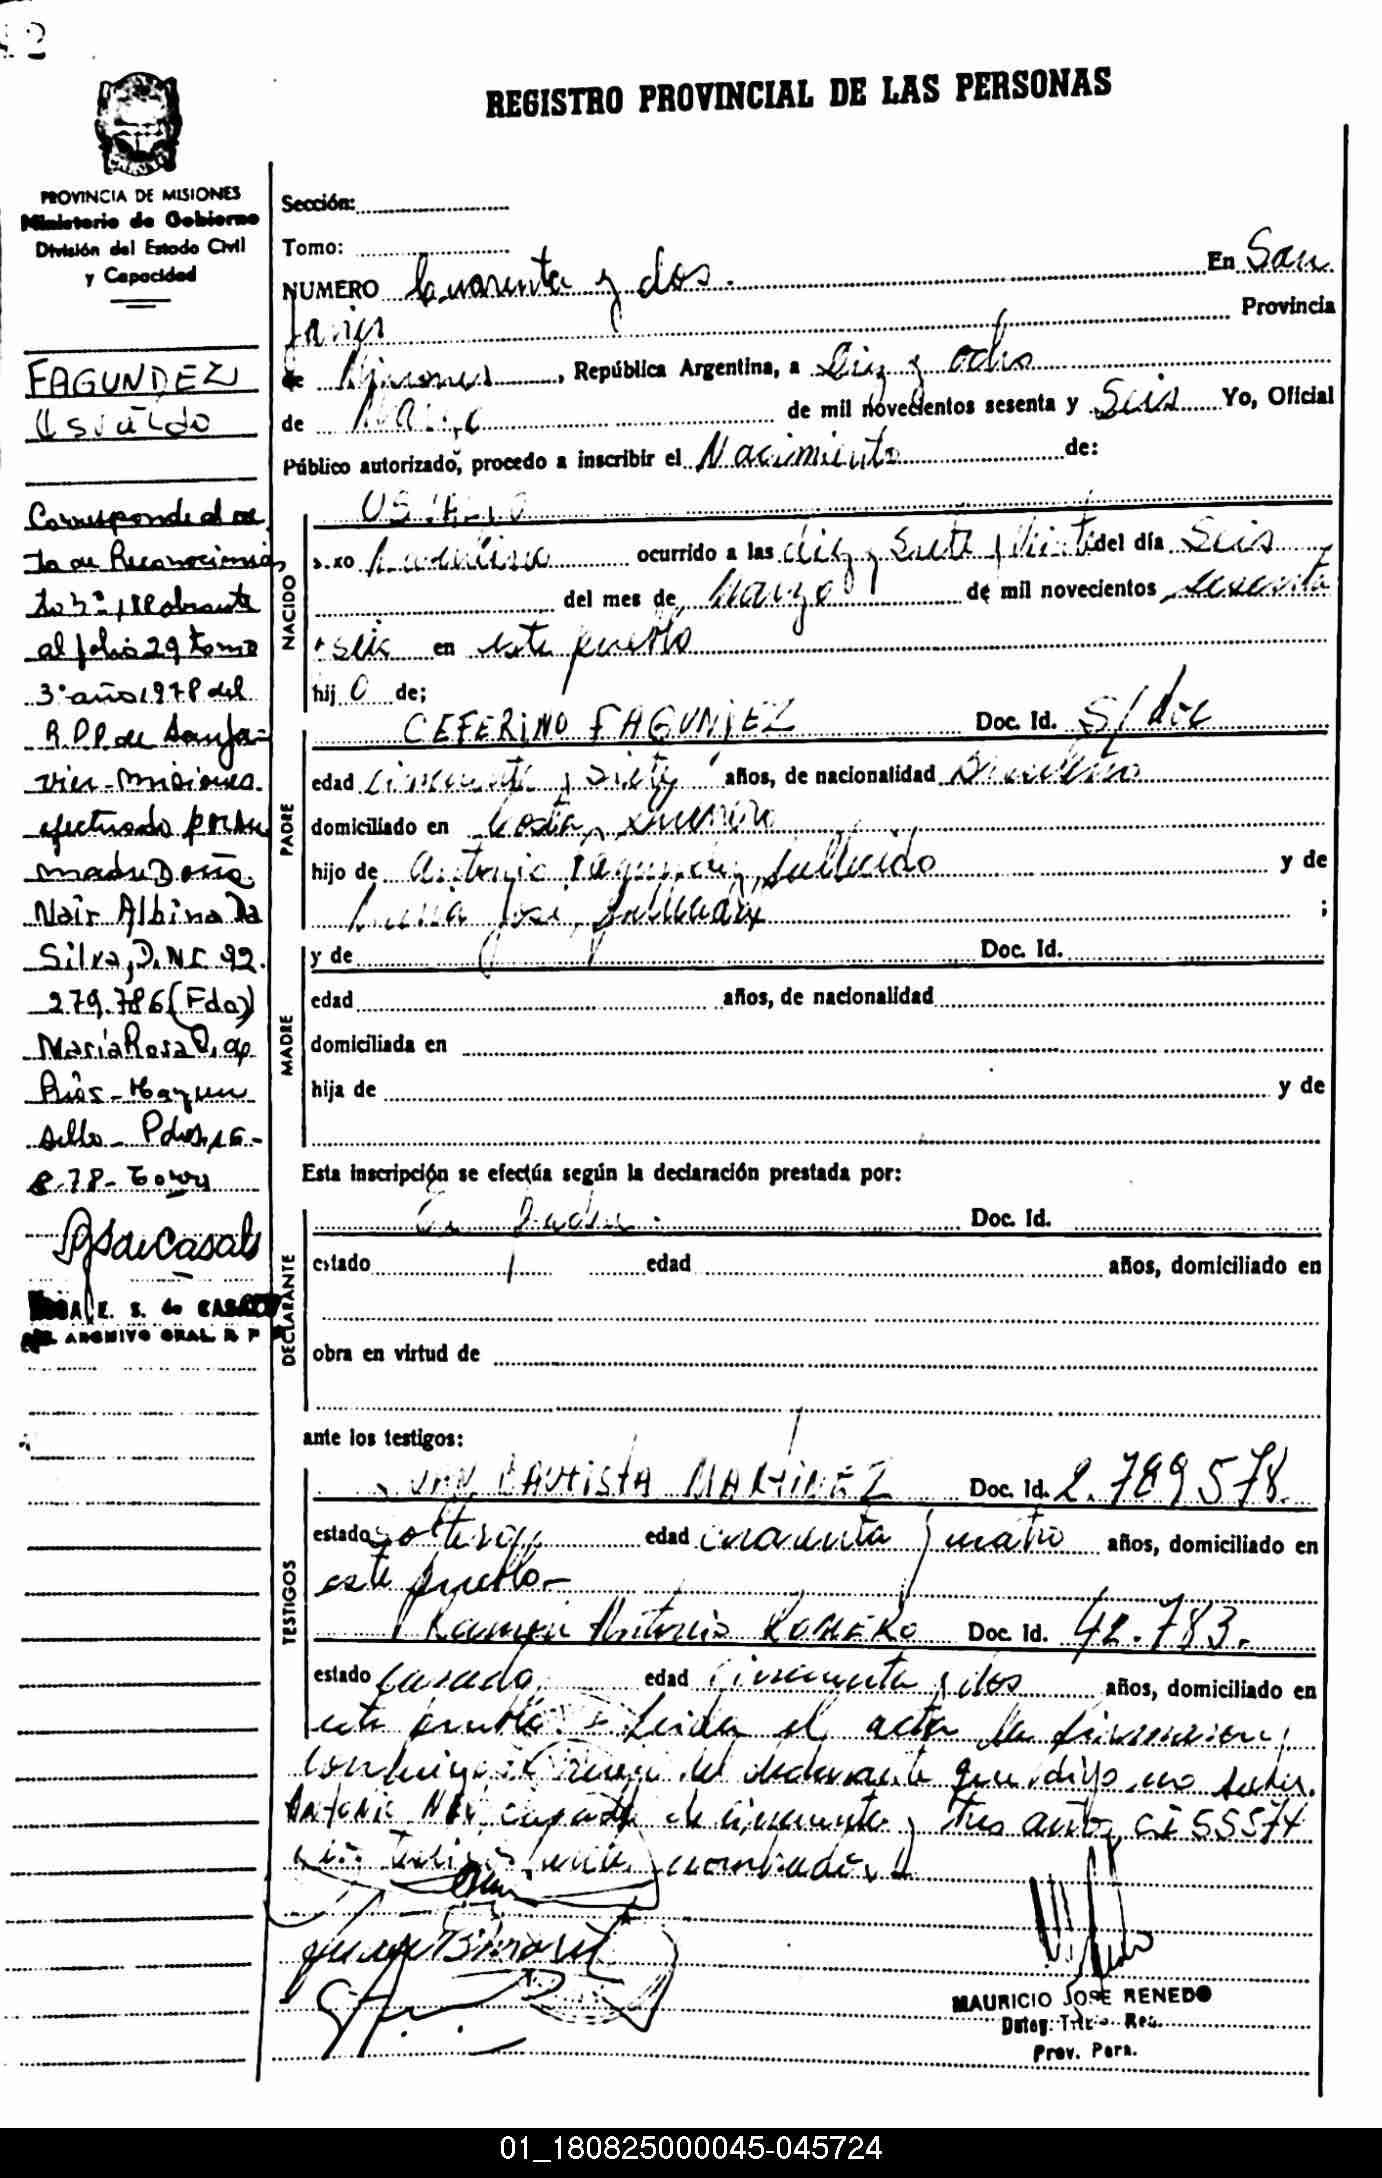 42
REGISTRO PROVINCIAL DE LAS PERSONAS
PROVINCIA DE MISIONES
Ministerio de Gobierno
División del Estado Civil
y Capacidad
FAGUNDEZ
Osvaldo
Corresponde al ac
ta de Reconocimien
to Nº 1, obrante
al folio 29 tomo
3º año 1978 del
R.P.P de San Ja-
vier-Misiones.
efectuado por su
madre Doña
Nair Albina Da
Silva, D.N.I. 92.
279.786 (Fdo)
María Rosa D. de
Ríos - Hay un
sello - Pdas, 16-
8-78-
E. S. de CASALS
ARCHIVO GRAL. R. P
Sección:
Tomo:
NUMERO Cuarenta y dos. En San
Javier Provincia
de Misiones, República Argentina, a Diez y ocho
de Marzo de mil novecientos sesenta y Seis Yo, Oficial
Público autorizado, procedo a inscribir el Nacimiento de:
OSVALDO
NACIDO
sexo masculino ocurrido a las diez y siete y veinte del día Seis
del mes de Marzo de mil novecientos sesenta
y seis en este pueblo
hijo de;
PADRE
CEFERINO FAGUNDEZ Doc. Id. S/doc
edad cincuenta y siete años, de nacionalidad Brasileño
domiciliado en Costa
hijo de Antonio Fagundez, fallecido y de
José, fallecida ;
MADRE
y de Doc. Id.
edad años, de nacionalidad
domiciliada en
hija de y de
Esta inscripción se efectúa según la declaración prestada por:
DECLARANTE
El padre. Doc. Id.
estado edad años, domiciliado en
obra en virtud de
ante los testigos:
TESTIGOS
JUAN BAUTISTA MARTINEZ Doc. Id. 2.789.578.
estado soltero, edad cuarenta y cuatro años, domiciliado en
este pueblo-
Ramón Antonio ROMERO Doc. Id. 42.783.
estado casado, edad cincuenta y dos años, domiciliado en
este pueblo.- Leída el acta la firmaron
conmigo a ruego del declarante que dijo no saber.
Antonio casado de cincuenta y tres años, CI 55574
testigos nombrados
MAURICIO JOSE RENEDO
Deleg. Titular Reg.
Prov. Pers.
01_180825000045-045724